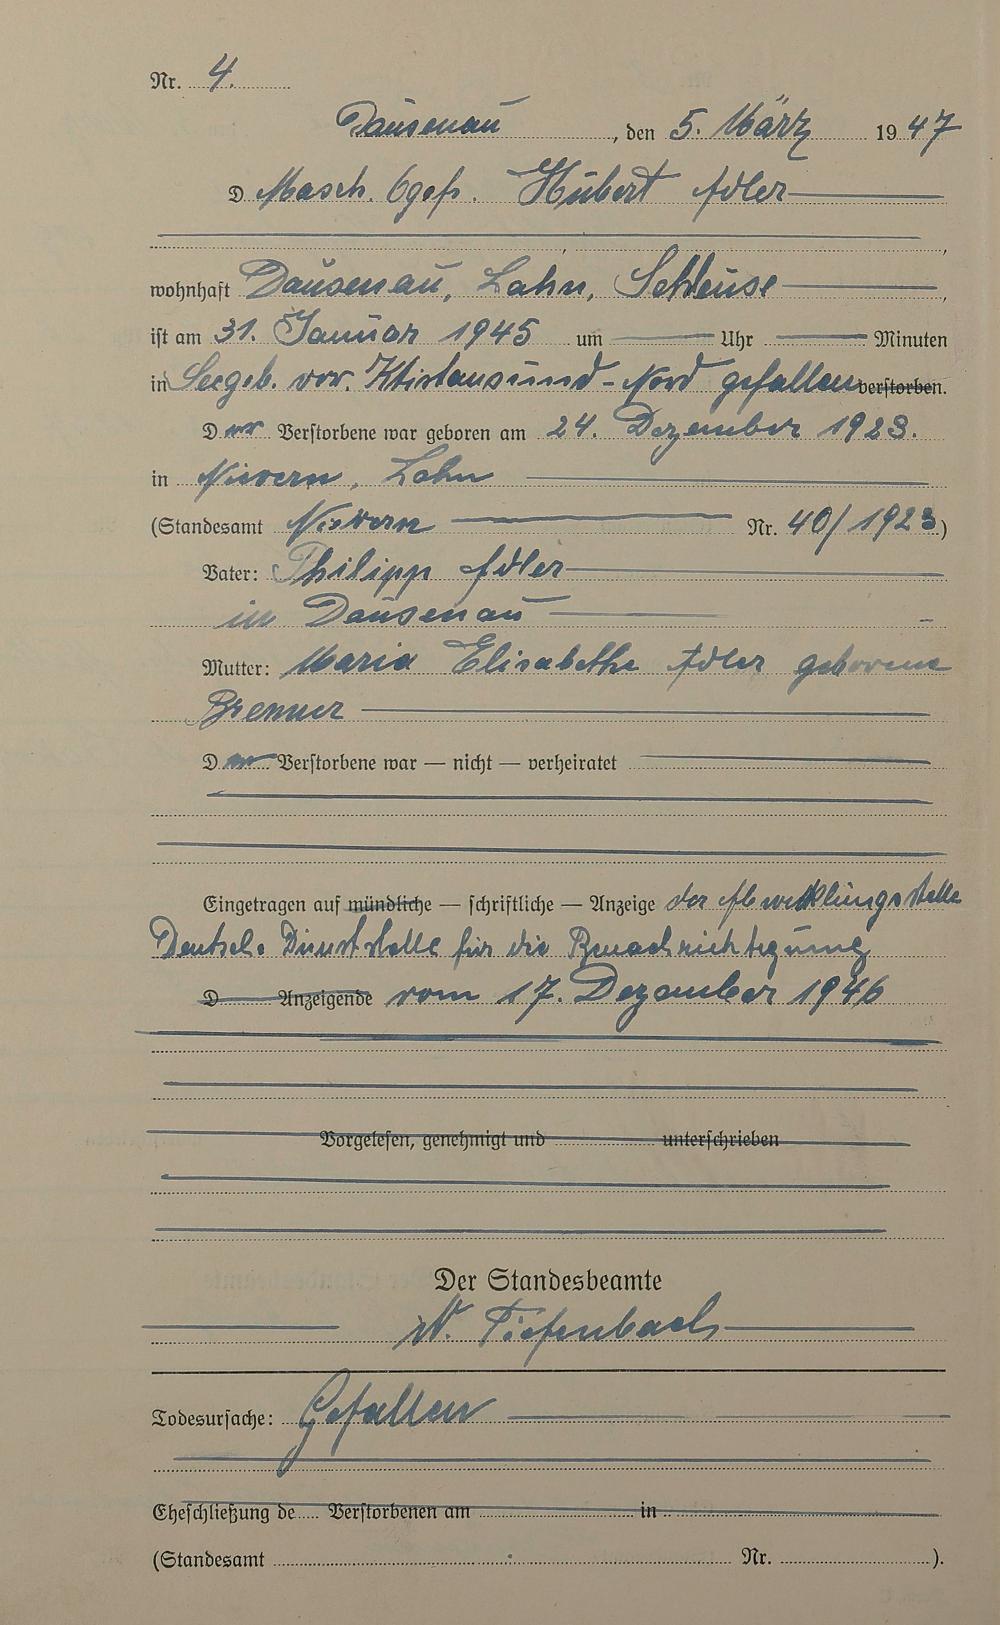 Nr. 4.
Dausenau, den 5. März 1947
D Masch. Ogefr. Hubert Adler
wohnhaft Dausenau, Lahn, Schleuse,
ist am 31. Januar 1945 um Uhr Minuten
in Seegeb. vor. Khistansund-Nord gefallen verstorben.
Der Verstorbene war geboren am 24. Dezember 1923.
in Nievern, Lahn
(Standesamt Nievern Nr. 40/1923)
Vater: Philipp Adler
in Dausenau
Mutter: Maria Elisabethe Adler geborene
Bremer
Der Verstorbene war — nicht — verheiratet
Eingetragen auf mündliche — schriftliche — Anzeige der Abwicklungsstelle
Deutsch. Dienststelle für die Benachrichtigung
D Anzeigende vom 17. Dezember 1946
Vorgelesen, genehmigt und unterschrieben
Der Standesbeamte
W. Tiefenbach
Todesursache: Gefallen
Eheschließung de Verstorbenen am in
(Standesamt Nr. ).